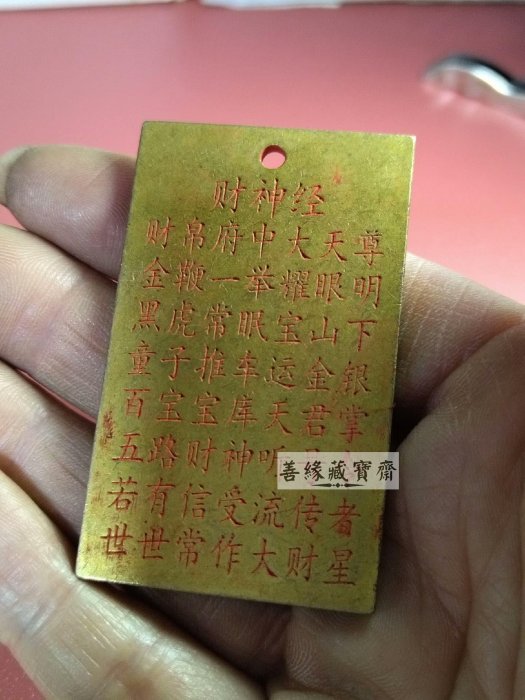 财神经
财帛府中大天尊
金鞭一举耀眼明
黑虎常眠宝山下
童子推车运金银
百宝宝库天君掌
五路财神听
若有信受流传者
世世常作大财星
善緣藏寶齋